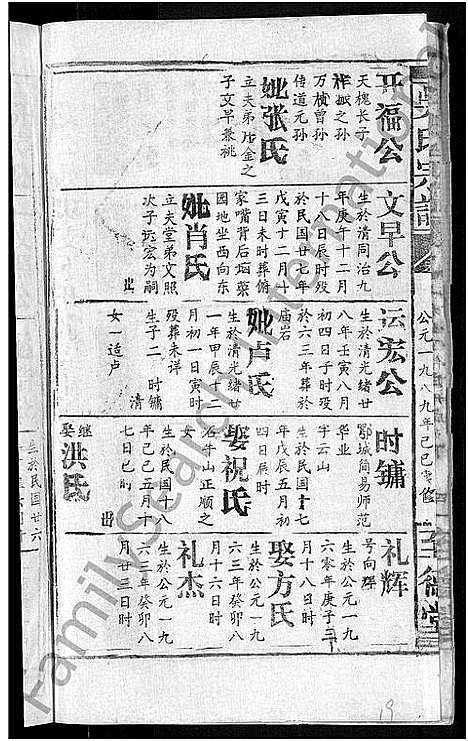 吴氏宗谱
公元一九八九年己巳
至德堂
开福公
天槐长子
祚振之孙
万楨曾孙
传道元孙
妣张氏
立夫弟启金之
子文早兼祧
文早公
生於清同治九
年庚午十二月
十八日辰时殁
於民国廿七年
戊寅十二月十
三日未时葬俯
家嘴背后坛药
园地坐西向东
妣肖氏
立夫堂弟文照
次子远宏为嗣
出
远宏公
生於清光绪廿
八年壬寅八月
初四日子时殁
於六三年葬
庙岩
妣卢氏
生於清光绪廿
一年甲辰十二
月初一日寅时
殁葬未详
生子二 时镛
清
女一适卢
时镛
鄂城简易师范
华业
字云山
生於民国十七
年戊辰五月初
四日辰时
娶祝氏
石牛山正顺之
女
生於民国十八
年己巳五月十
七日巳时
出
继娶洪氏
生於民国廿六
礼辉
号向辉
生於公元一九
六零年庚子三
月十八日时
娶方氏
生於公元一九
六三年癸卯八
月十六日时
礼杰
生於公元一九
六三年癸卯八
月廿三日时
FamilySearch International
19